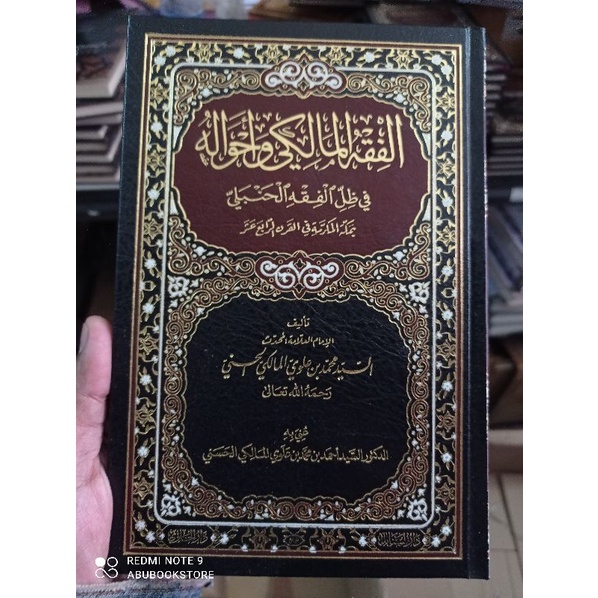 الفقه المالكي وأحواله
في ظل الفقه الحنبلي
بمكة المكرمة في القرن الرابع عشر
تأليف
الإمام العلامة المحدث
السيد محمد بن علوي المالكي الحسني
رحمه الله تعالى
عني به
الدكتور السيد احمد بن محمد بن علوي المالكي الحسني
REDMI NOTE 9
ABUBOOKSTORE